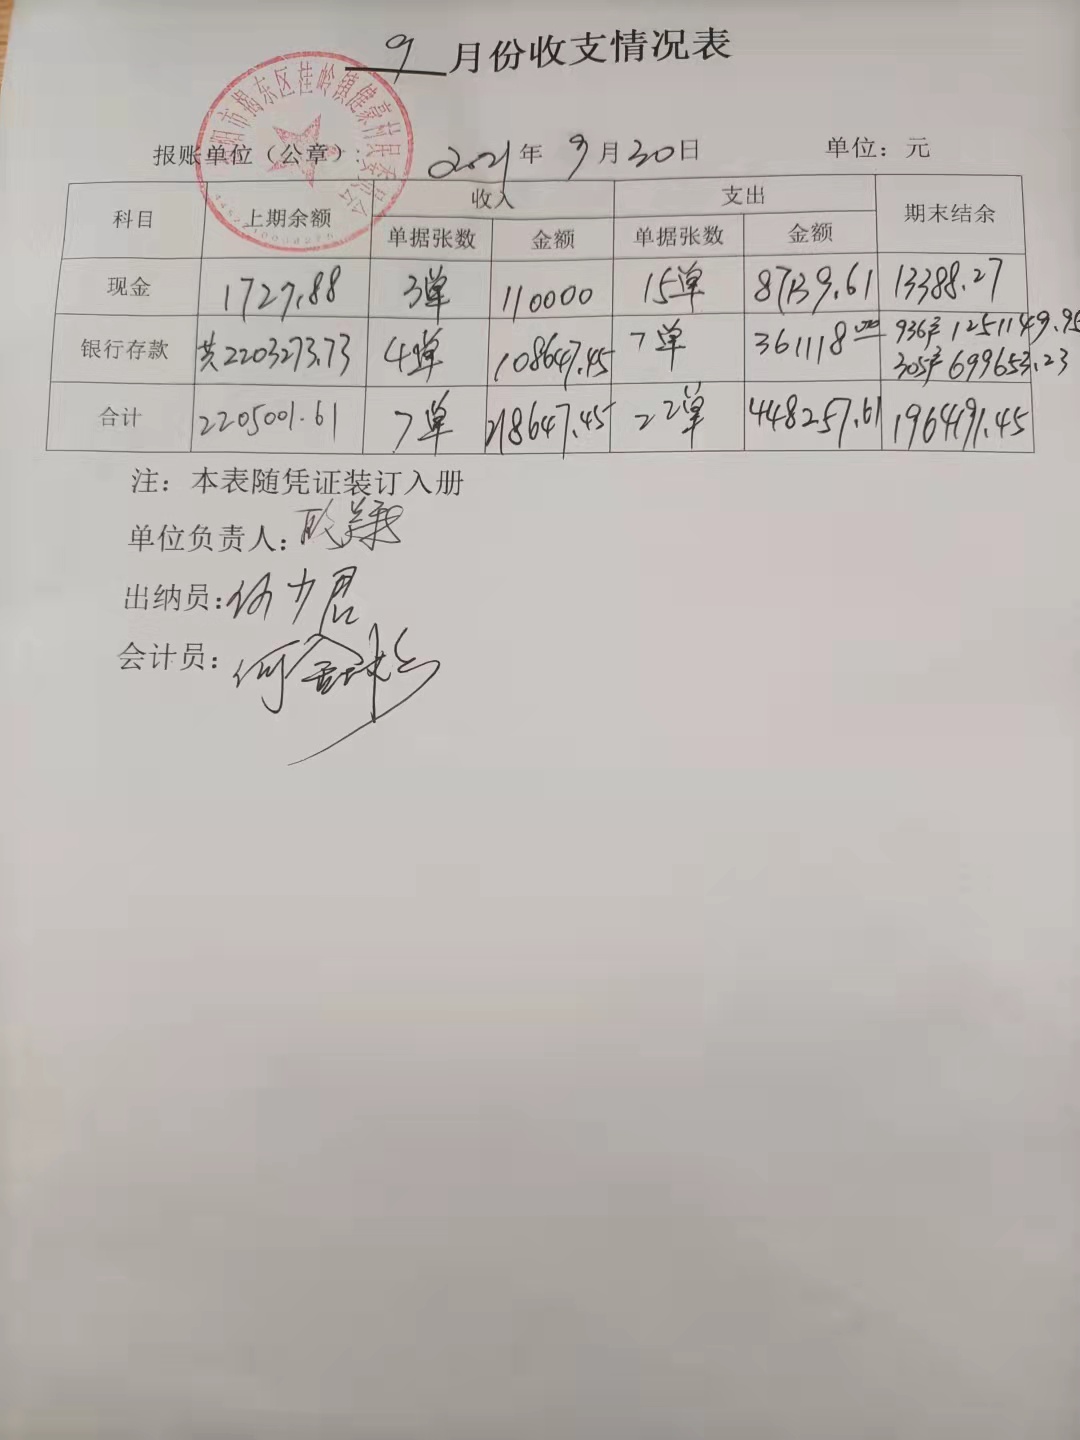 9月份收支情况表
揭阳市揭东区桂岭镇健豪村民委员会
报账单位（公章）: 2021年 9月30日 单位：元
科目 上期余额 收入 支出 期末结余
单据张数 金额 单据张数 金额
现金 1727.88 3单 110000 15单 87139.61 13388.27
银行存款 共2203273.73 4单 108647.45 7单 361118.00 936户1251149.95
305户699653.23
合计 2205001.61 7单 218647.45 22单 448257.61 1964191.45
注：本表随凭证装订入册
单位负责人：
出纳员：
会计员：何